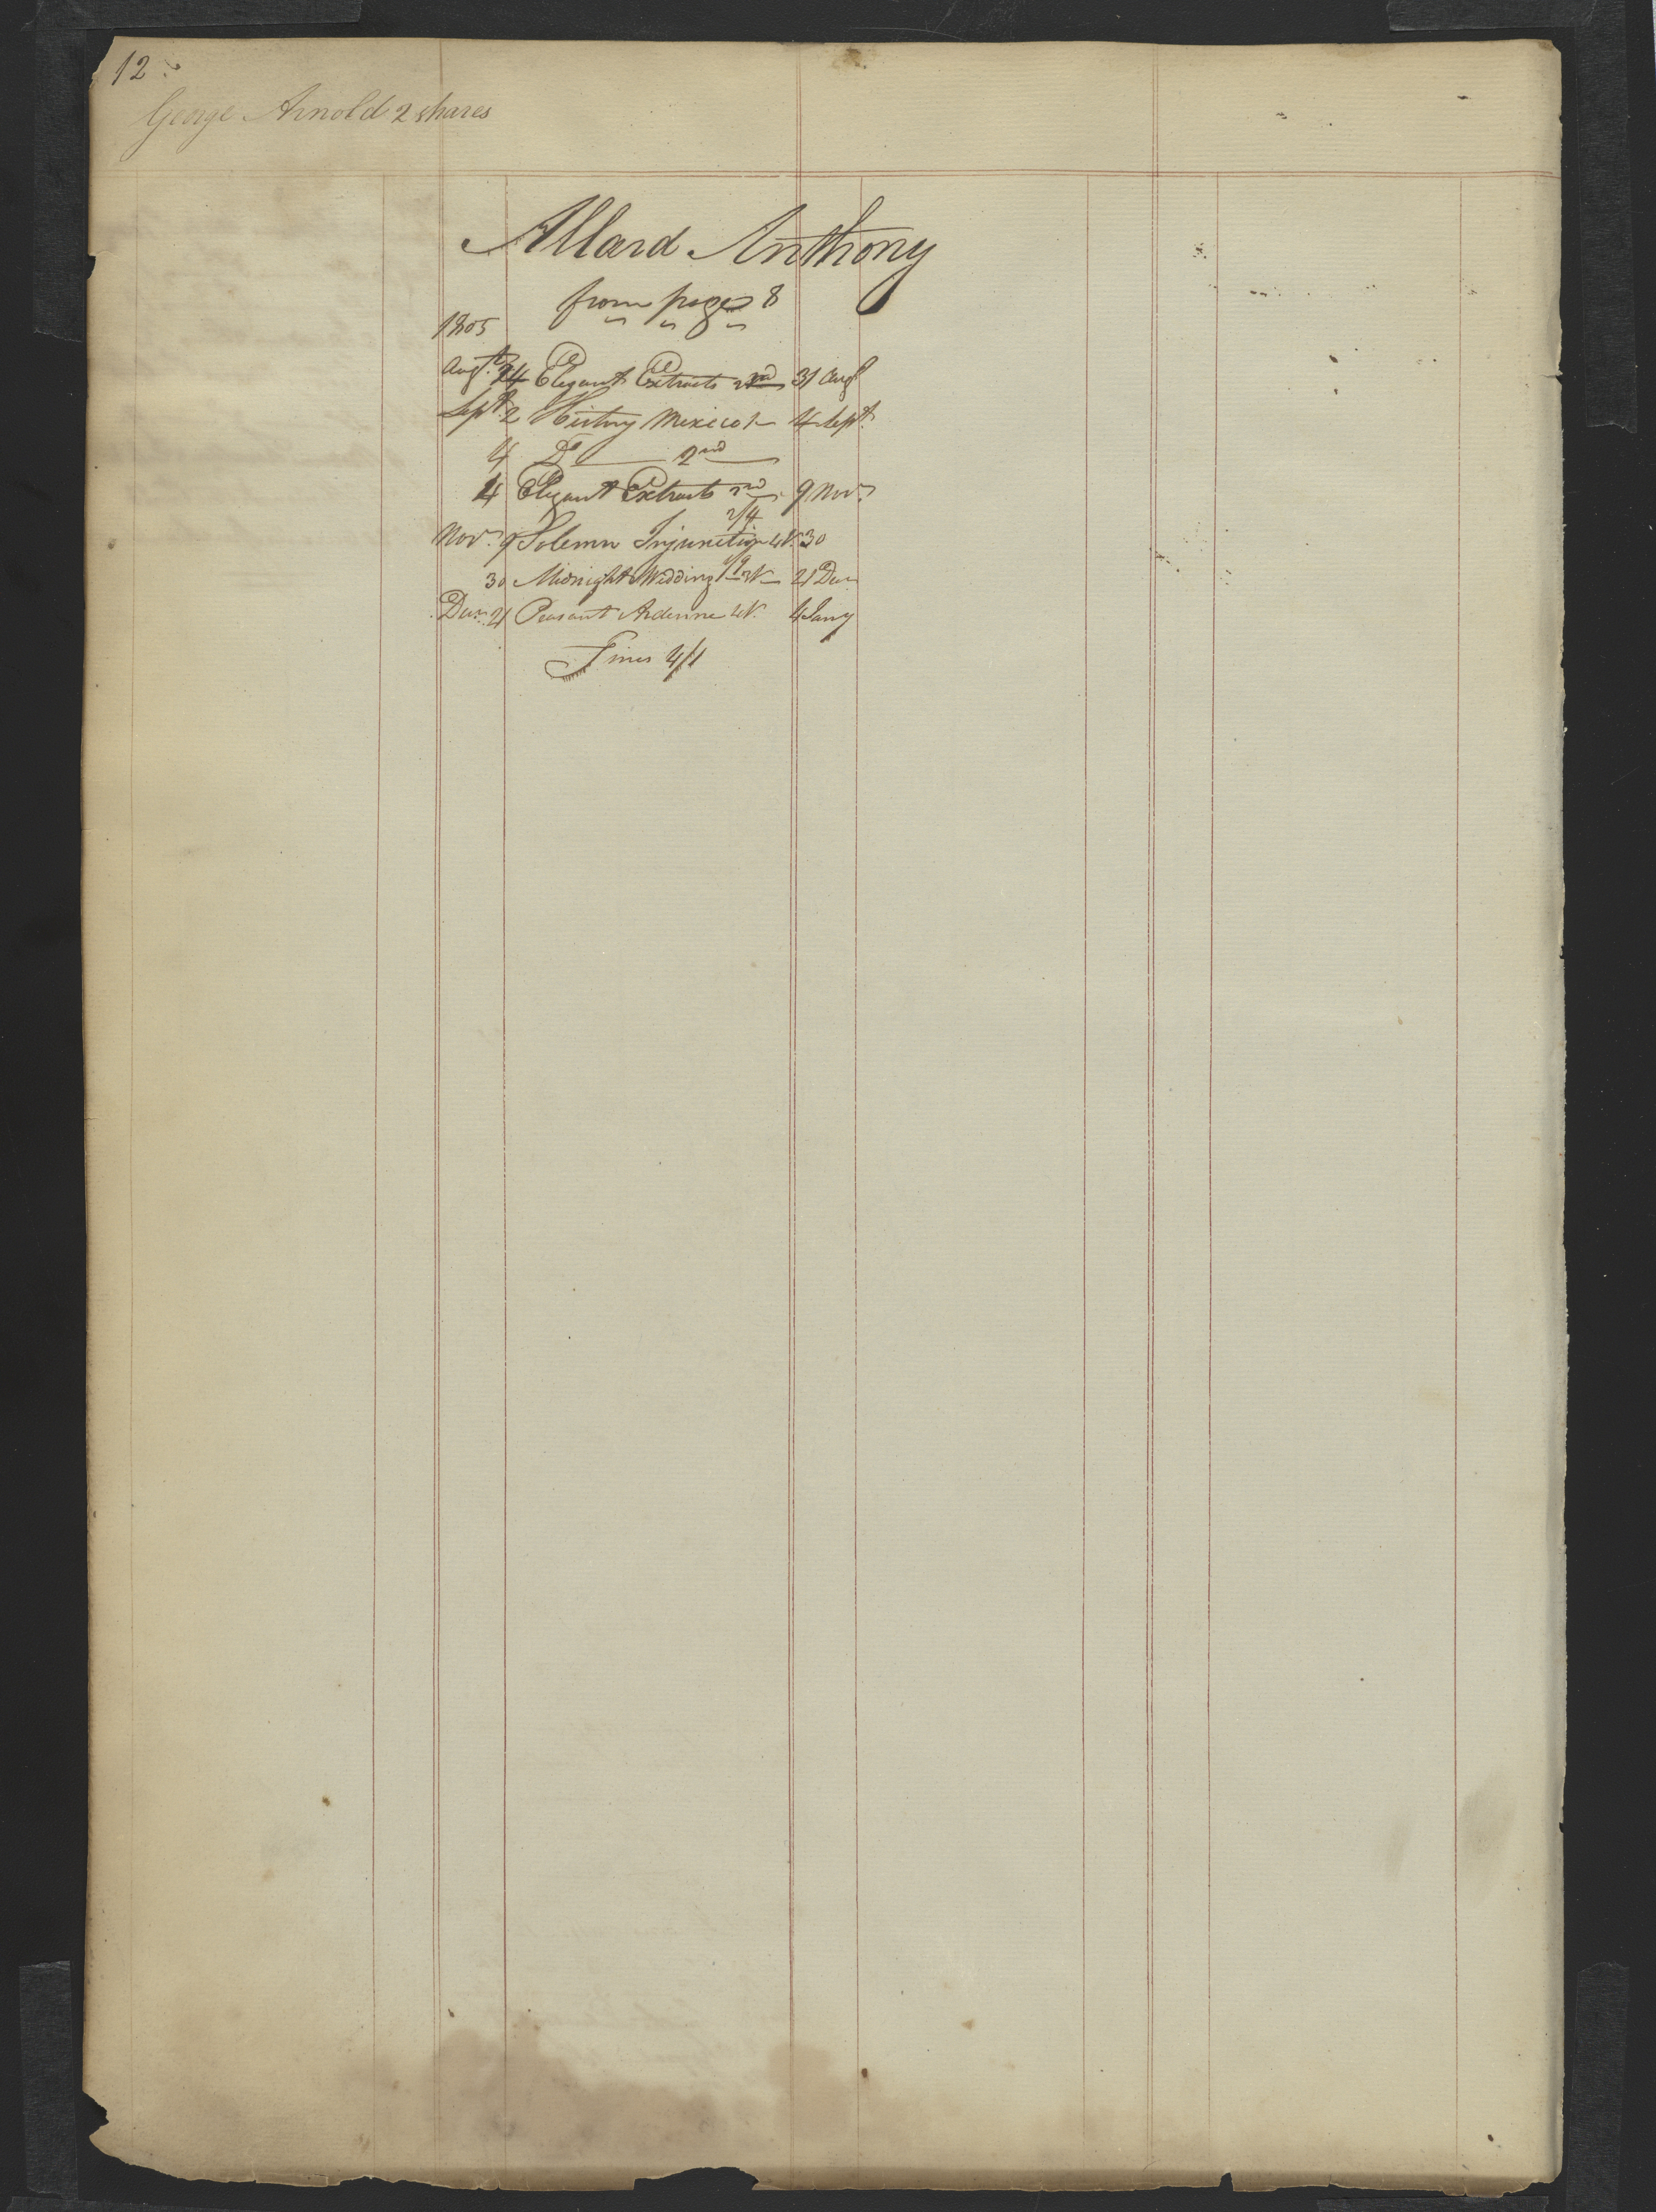 12
George Arnold 2 shares
Allard Anthony
from page 8
1805
Augt. 24 Elegant Extracts 2nd 31 Augt
Sept. 2 History Mexico 1 4 Sept.
4 Do 2nd
4 Elegant Extracts 2nd 9 Novr.
2/4
Novr. 9 Solemn Injunction 4V. 30
1/9
30 Midnight Wedding 2V 21 Decr
Decr. 21 Peasant Ardenne 4V. 4 Jany
Fines 4/1